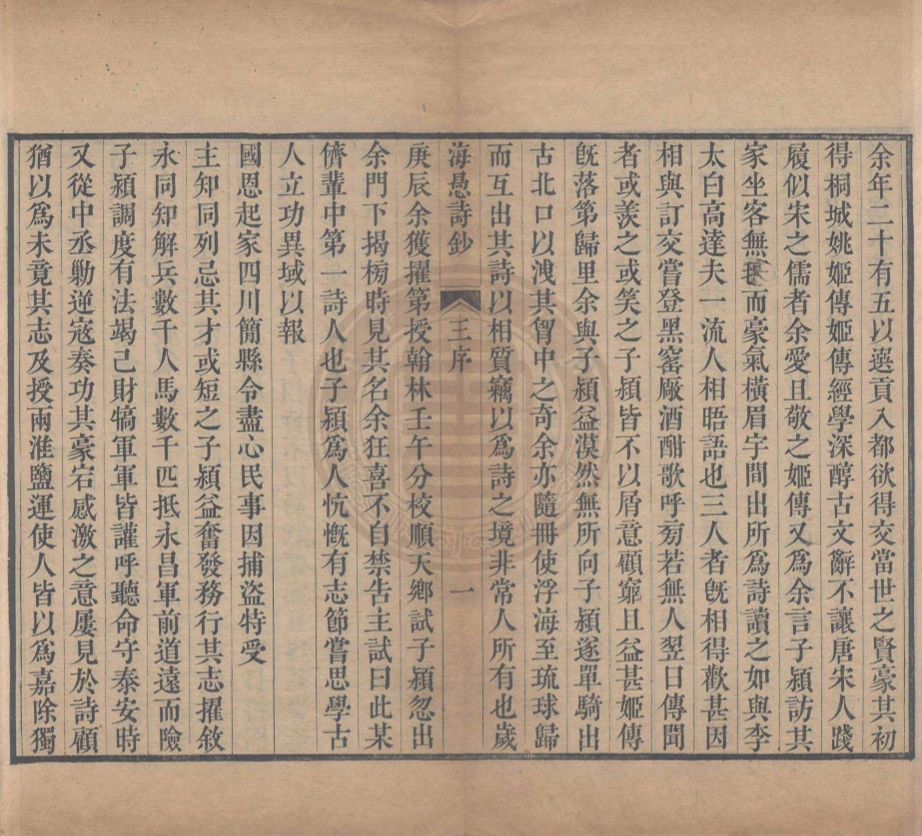 余年二十有五以選貢入都欲得交當世之賢豪其初
得桐城姚姬傳姬傳經學深醇古文辭不讓唐宋人踐
履似宋之儒者余愛且敬之姬傳又爲余言子潁訪其
家坐客無氊而豪氣橫眉宇間出所爲詩讀之如與李
太白高達夫一流人相晤語也三人者旣相得歡甚因
相與訂交嘗登黑窑厰酒酣歌呼旁若無人翌日傳聞
者或羨之或笑之子潁皆不以屑意顧窮且益甚姬傳
旣落第歸里余與子潁益漠然無所向子潁遂單騎出
古北口以洩其胷中之奇余亦隨冊使浮海至琉球歸
而互出其詩以相質竊以爲詩之境非常人所有也歲
海愚詩鈔 王序 一
庚辰余獲擢第授翰林壬午分校順天鄉試子潁忽出
余門下揭榜時見其名余狂喜不自禁告主試曰此某
儕輩中第一詩人也子潁爲人忼慨有志節嘗思學古
人立功異域以報
國恩起家四川簡縣令盡心民事因捕盜特受
主知同列忌其才或短之子潁益奮發務行其志擢敘
永同知解兵數千人馬數千匹抵永昌軍前道遠而險
子潁調度有法竭己財犒軍軍皆讙呼聽命守泰安時
又從中丞勦逆寇奏功其豪宕感激之意屢見於詩顧
猶以爲未竟其志及授兩淮鹽運使人皆以爲嘉除獨